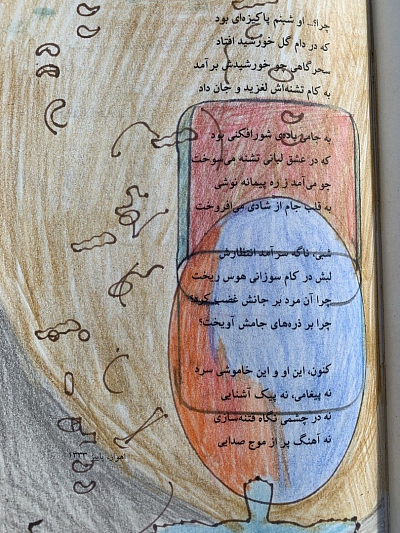 چرا؟.. او شبنم پاکیزه‌ای بود
که در دام گل خورشید افتاد
سحرگاهی چو خورشیدش برآمد
به کام تشنه‌اش لغزید و جان داد
به جامی باده‌ی شورافکنی بود
که در عشق لبانی تشنه می‌سوخت
چو می‌آمد ز ره پیمانه نوشی
به قلب جام از شادی می‌افروخت
شبی، ناگه سر آمد انتظارش
لبش در کام سوزانی هوس ریخت
چرا آن مرد بر جانش غضب کرد؟
چرا بر ذره‌های جامش آویخت؟
کنون، این او و این خاموشی سرد
نه پیغامی، نه پیک آشنایی
نه در چشمی نگاه فتنه‌سازی
نه آهنگ پر از موج صدایی
اهواز، پاییز ۱۳۳۳